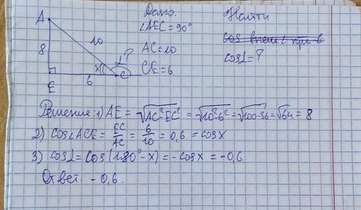 A
8
10
E
6
x
C
Дано:
∠AEC = 90°
AC = 10
CE = 6
Найти
cosL = ?
Решение: 1) AE = √AC²-EC² = √10²-6² = √100-36 = √64 = 8
2) Cos∠ACE = EC/AC = 6/10 = 0,6 = cosx
3) CosL = Cos(180° - x) = -cosx = -0,6
Ответ: -0,6.